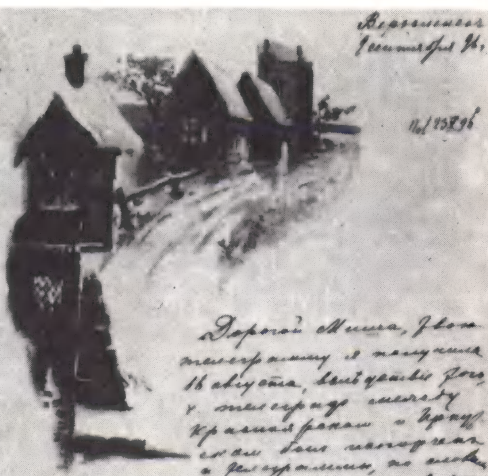 Верхоленск
1 сентября 96 г.
Дорогой Миша, Твою
телеграмму я получила
16 августа, вследствие того,
ч. телеграф между
Красноярском и Иркут
ском был испорчен
и телеграммы, по